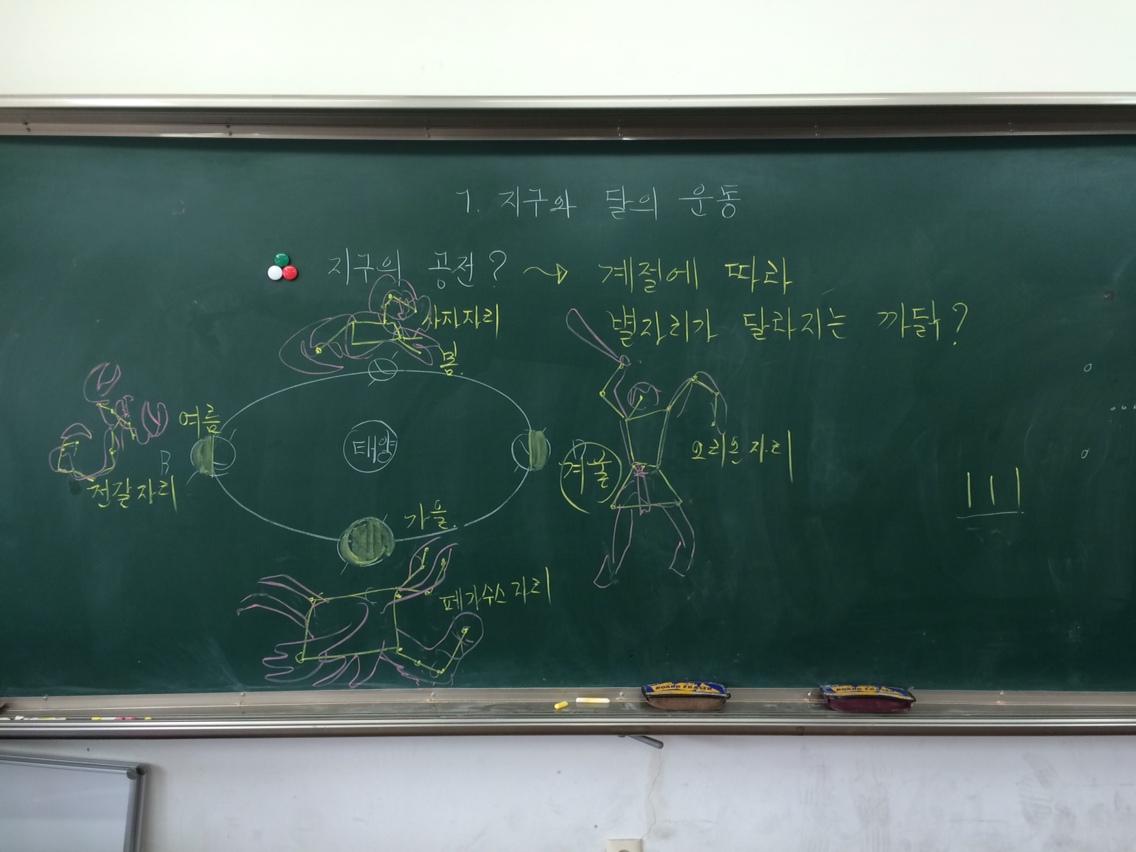 1. 지구와 달의 운동
지구의 공전? → 계절에 따라
별자리가 달라지는 까닭?
사자자리
봄.
여름
전갈자리
태양
겨울
오리온자리
가을.
페가수스자리
BOARD ERASER